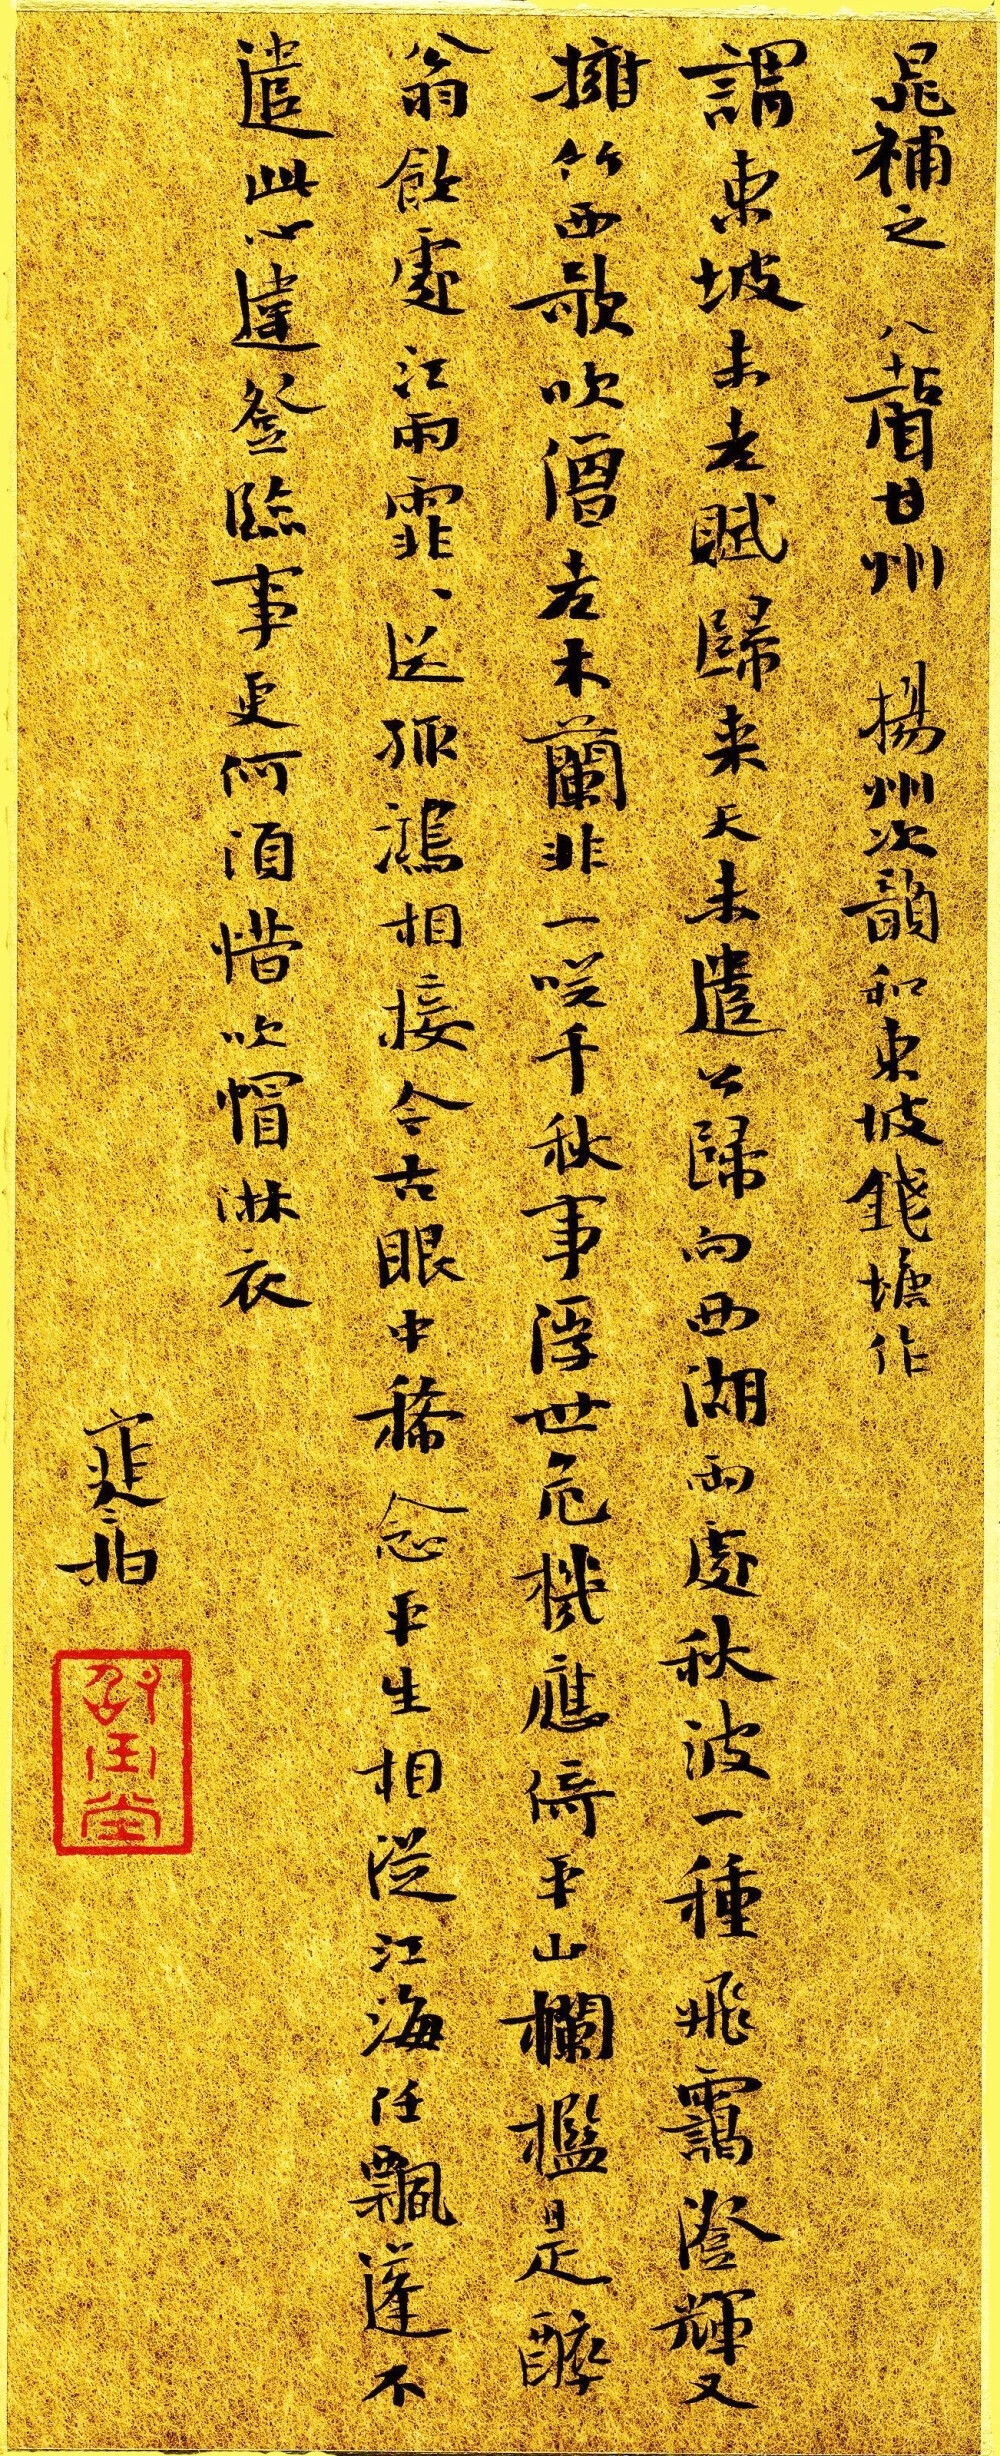 晁補之 八聲甘州 揚州次韻和東坡錢塘作
謂東坡未老賦歸來天未遣公歸向西湖兩處秋波一種飛靄澄輝又
擁竹西歌吹僧老木蘭非一咲千秋事浮世危機應倚平山欄檻是醉
翁飲處江雨霏、送孤鴻相接今古眼中稀念平生相從江海任飄蓬不
遣此心違登臨事更何須惜吹帽淋衣